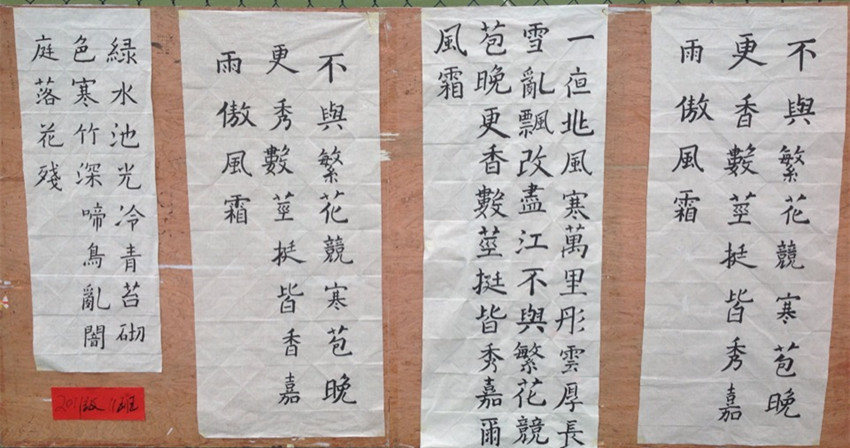 不與繁花競寒苞晚
更香數莖挺皆秀嘉
雨傲風霜
一夜北風寒萬里彤雲厚長
雪亂飄改盡江不與繁花競
苞晚更香數莖挺皆秀嘉爾
風霜
不與繁花競寒苞晚
更秀數莖挺皆香嘉
雨傲風霜
綠水池光冷青苔砌
色寒竹深啼鳥亂闇
庭落花殘